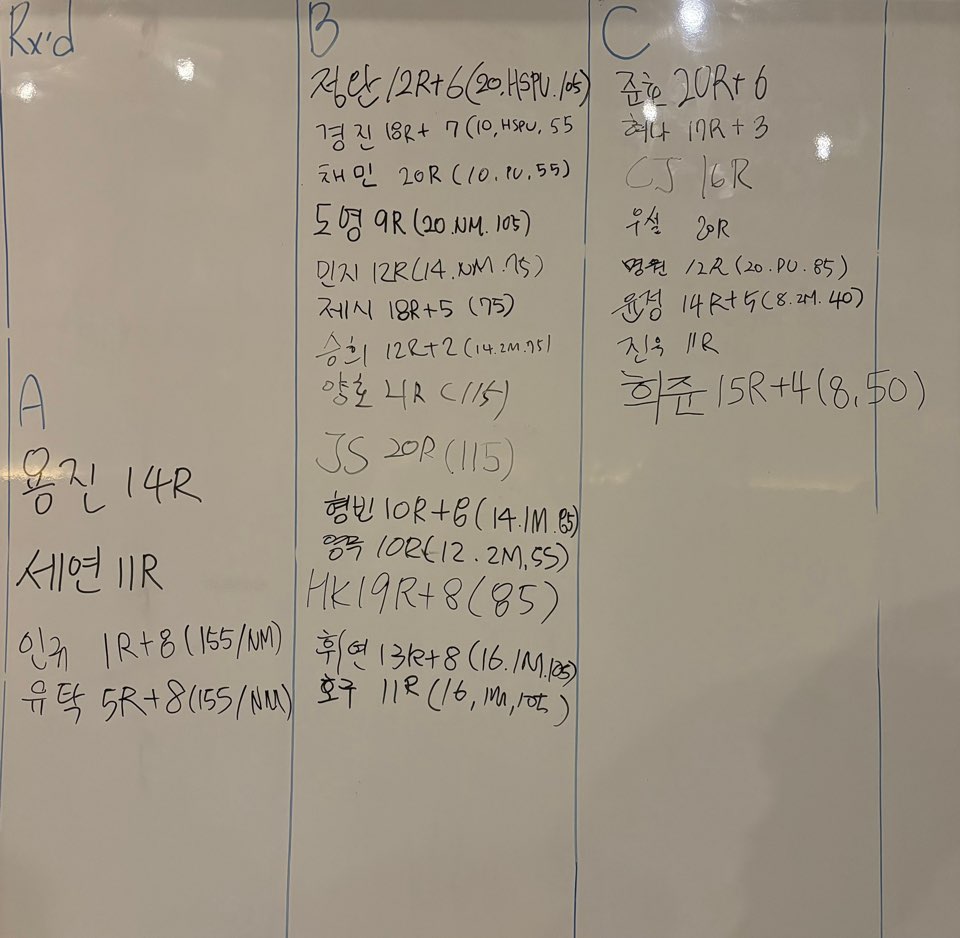 Rx'd
A
용진 14R
세연 11R
인규 1R+8(155/NM)
유탁 5R+8(155/NM)
B
정란 12R+6(20.HSPU.105)
경진 18R+ 7(10,HSPU, 55
채민 20R(10.PU.55)
도영 9R(20.NM.105)
민지 12R(14.NM.75)
제시 18R+5 (75)
승희 12R+2(14.2M.75)
양호 4R (115)
JS 20R(115)
형빈 10R+8(14.1M.85)
영욱 10R(12.2M,55)
HK 19R+8(85)
휘연 13R+8(16.1M.105)
호구 11R(16,1M,105)
C
준호 20R+6
혜나 17R+3
CJ 16R
우설 20R
명원 12R(20.PU.85)
윤정 14R+5(8.2M.40)
진욱 11R
희준 15R+4(8,50)